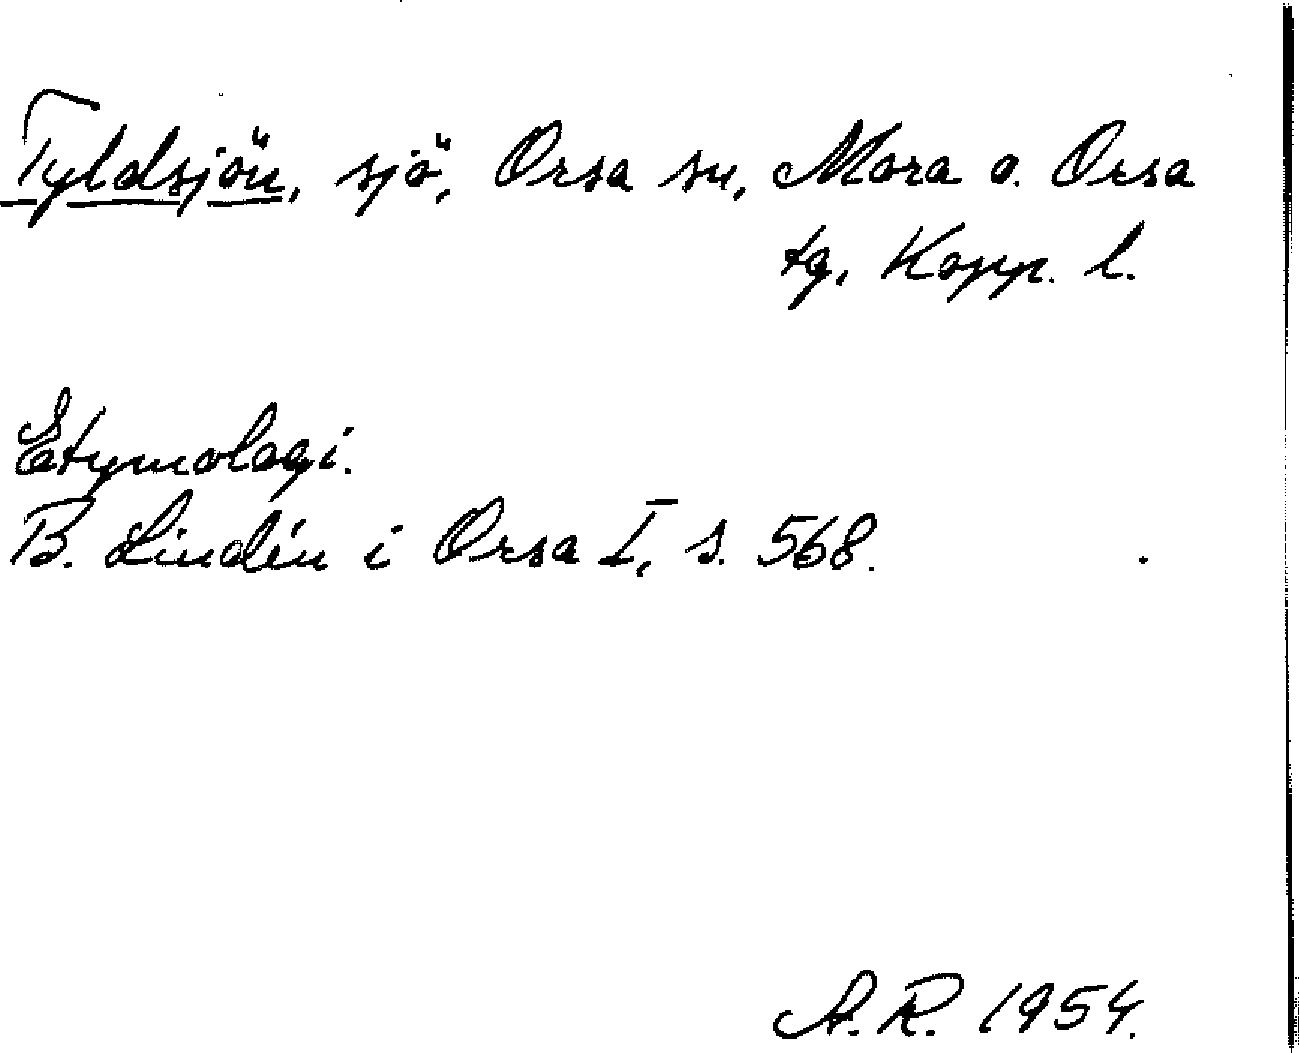 Tyldsjön, sjö, Orsa sn, Mora o. Orsa
tg, Kopp. l.
Etymologi.
B. Lindén i Orsa I, s. 568.
A.R. 1954.